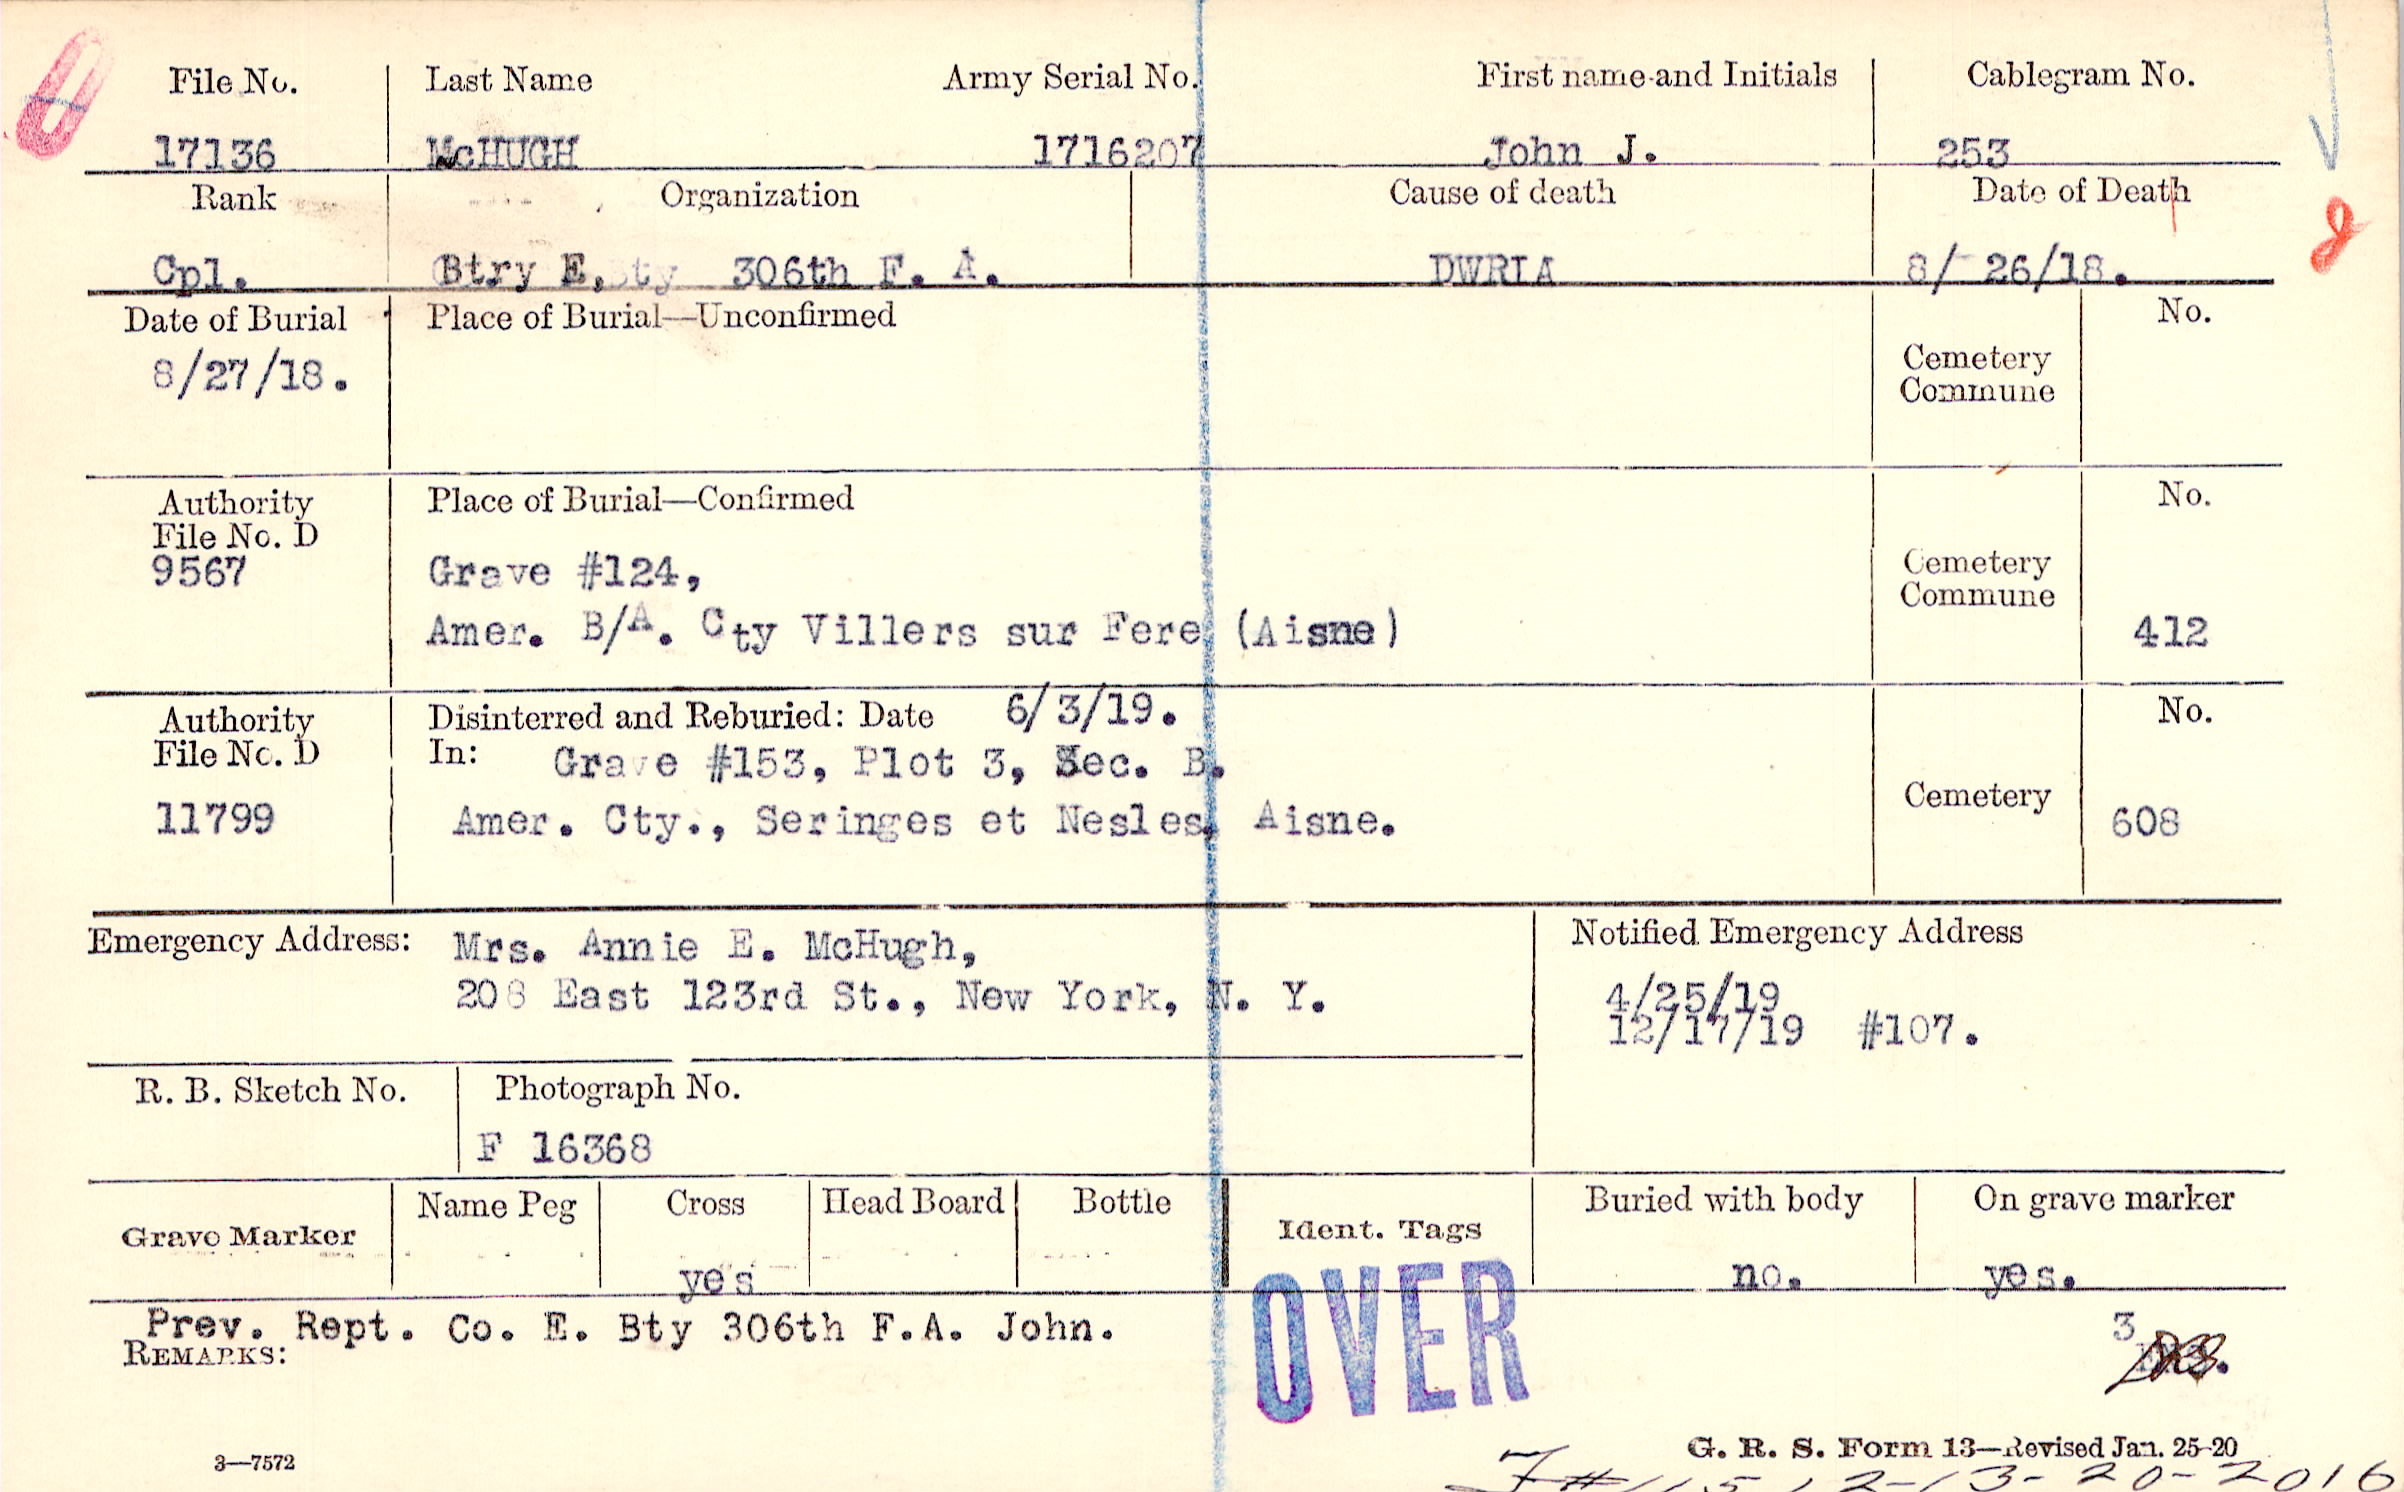 File No. Last Name Army Serial No. First name and Initials Cablegram No.
17136 McHUGH 1716207 John J. 253
Rank Organization Cause of death Date of Death
Cpl. Btry E, 306th F. A. DWRIA 8/ 26/18.
Date of Burial Place of Burial—Unconfirmed No.
8/27/18. Cemetery
Commune
Authority Place of Burial—Confirmed No.
File No. D
9567 Grave #124, Cemetery
Commune
Amer. B/A. Cty Villers sur Fere (Aisne) 412
Authority Disinterred and Reburied: Date 6/3/19. No.
File No. D In: Grave #153, Plot 3, Sec. B.
11799 Amer. Cty., Seringes et Nesles, Aisne. Cemetery 608
Emergency Address: Mrs. Annie E. McHugh, Notified Emergency Address
208 East 123rd St., New York, N. Y. 4/25/19
12/17/19 #107.
R. B. Sketch No. Photograph No.
F 16368
Grave Marker Name Peg Cross Head Board Bottle Ident. Tags Buried with body On grave marker
yes no. yes.
Prev. Rept. Co. E. Bty 306th F.A. John. 3
REMARKS:
OVER
3—7572 G. R. S. Form 13—Revised Jan. 25-20